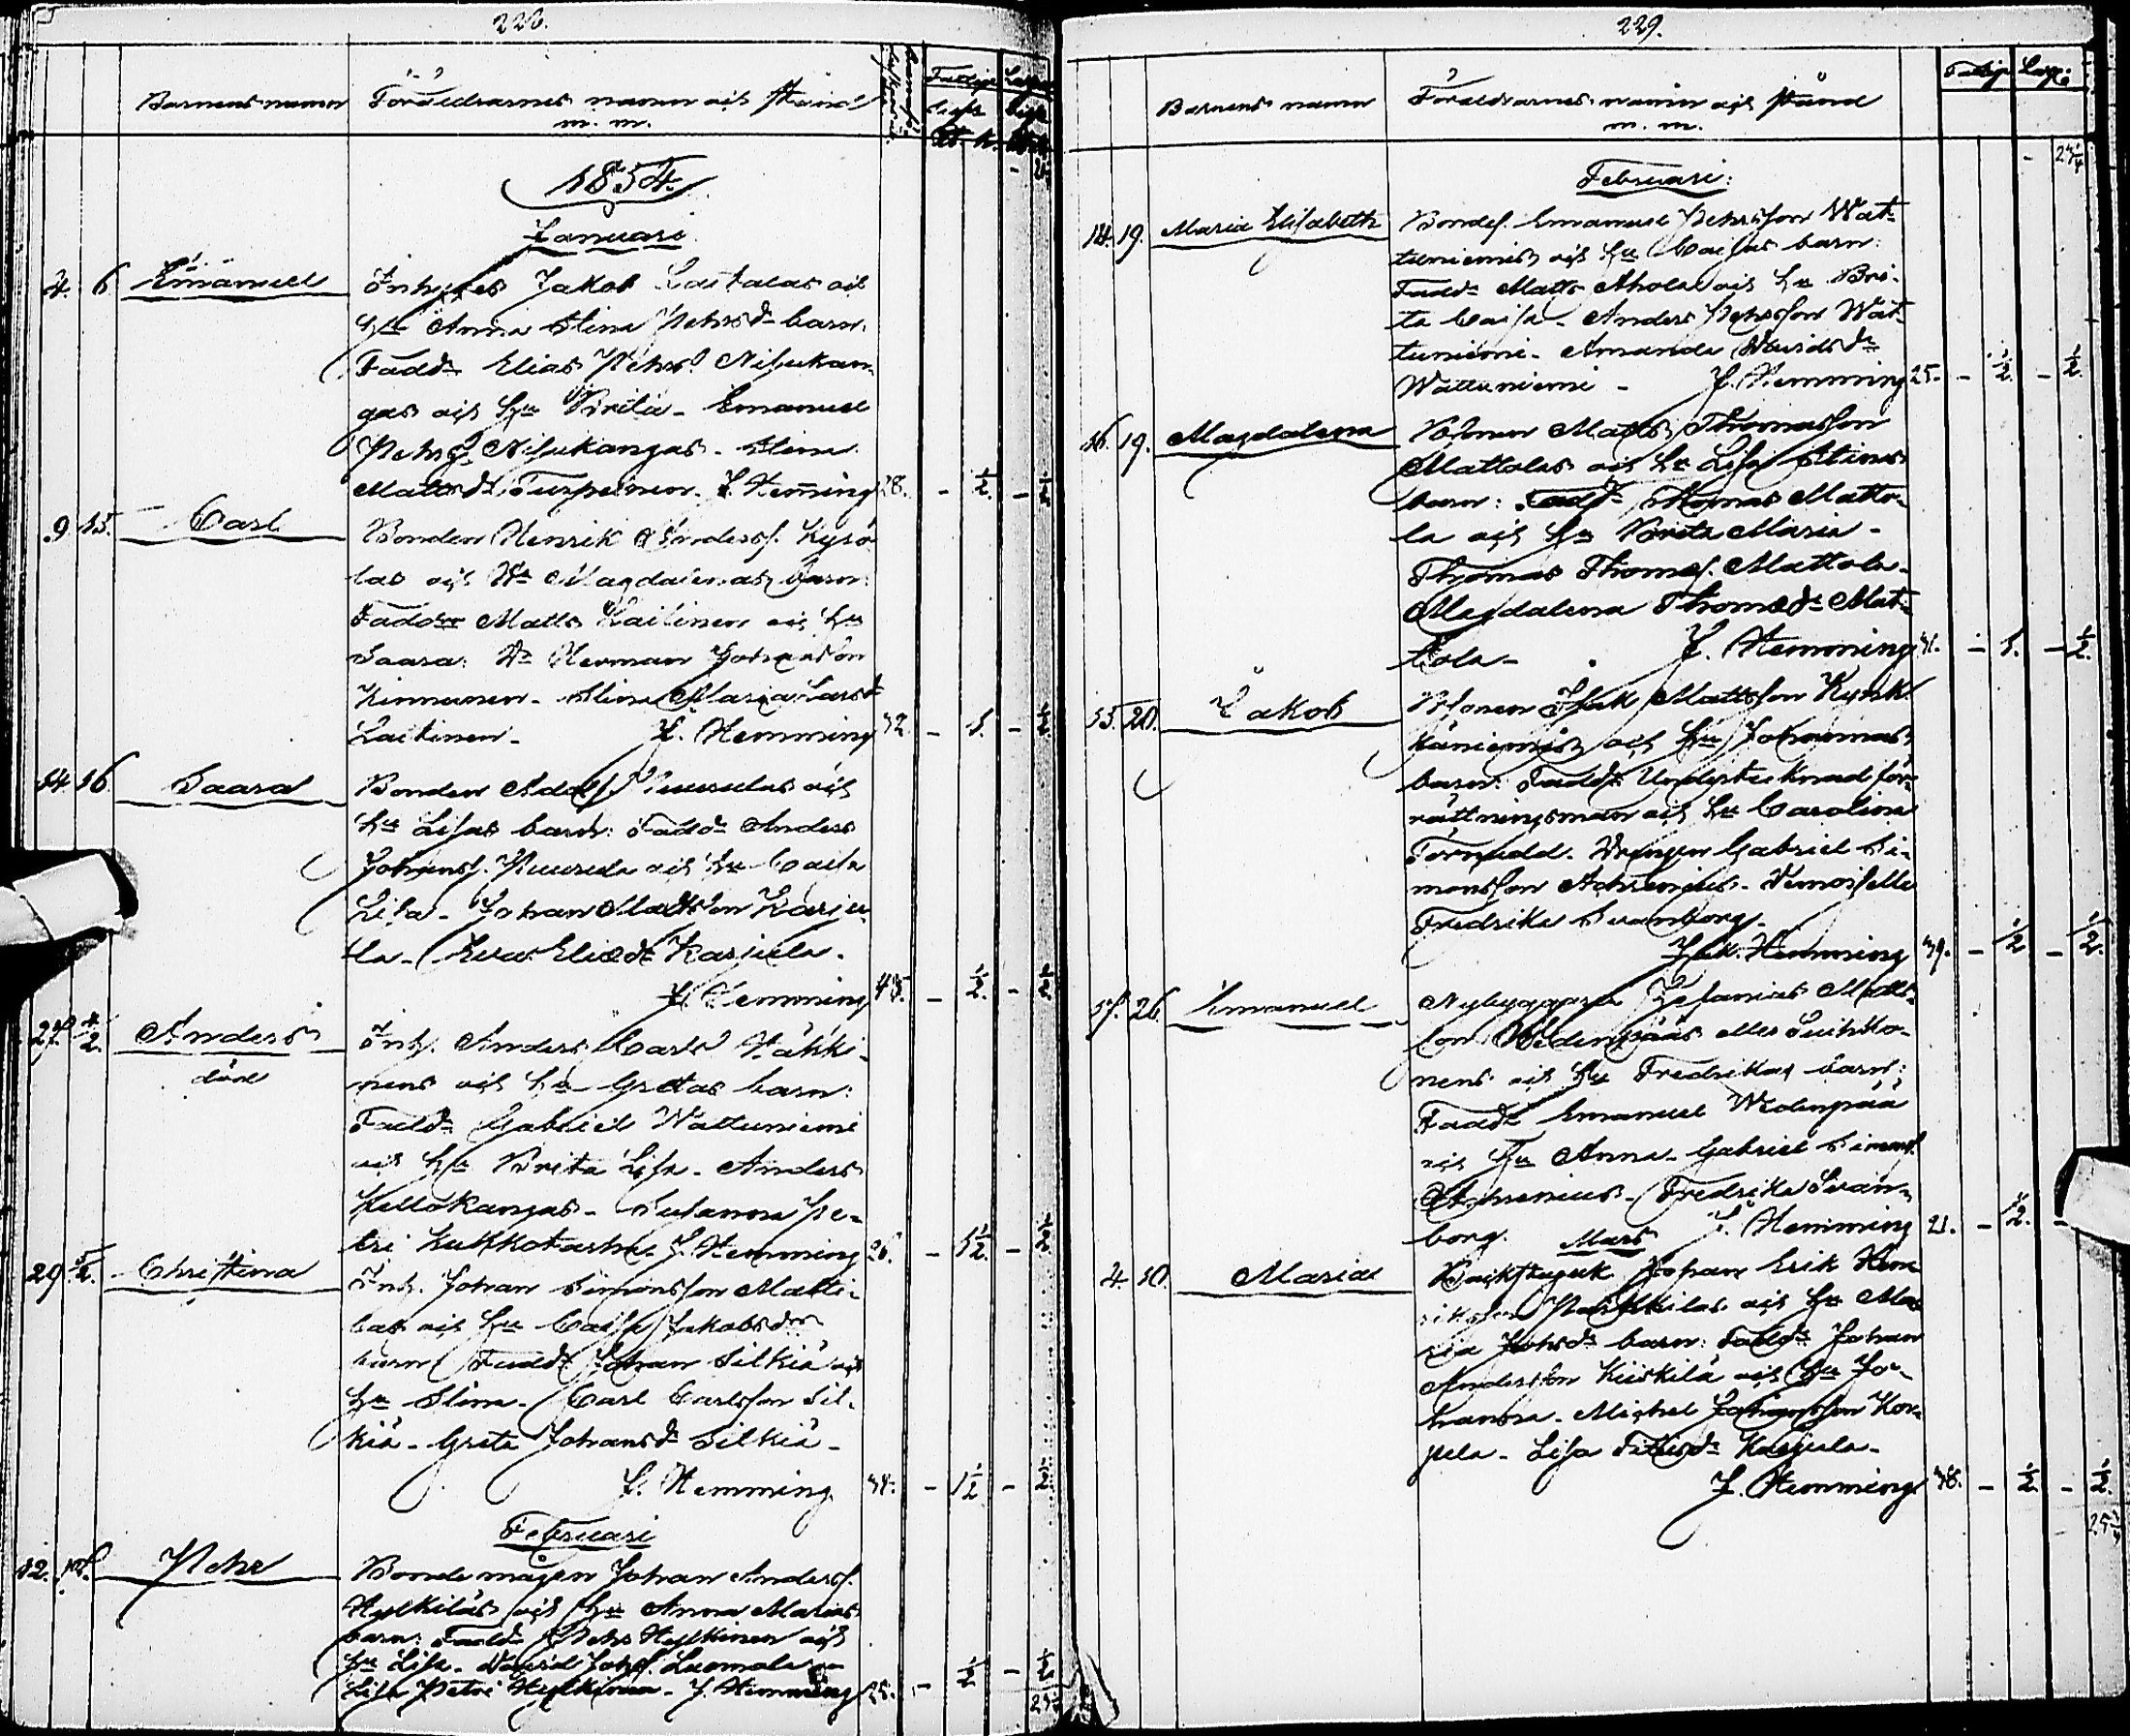 228.
Barnens namn Föräldrarnes namn och stånd
m. m.
1854.
Januari.
4. 6. Emanuel Inhyses Jakob Laitalas och
hu Anna Stina Pehrsdr barn.
Faddr Elias Pehrs. Nisukan-
gas och hu Brita - Emanuel
Pehrs. Nisukangas - Stina
Mattsdr Turpeinen. J. Hemming 28. - 1/2. -
9. 15. Carl Bonden Henrik Anderss. Kyrö-
las och Hu Magdalenas barn:
Faddrar Matts Laitinen och hu
Saara. Dr Herman Johansson
Kinnunen - Stina Maria Larsdr
Laitinen - J. Hemming 32. - 1. -
14. 16. Saara Bonden Adolf Puurulas och
hu Lisas barn: Faddr Anders
Johanss. Puurula och hu Caisa
Lisa - Johan Mattsson Karju-
la - Eva Eliædr Karjula.
J. Hemming 43. - 1/2. -
27. 4/2. Anders Inh. Anders Carls Häkki-
död nens och hu Gretas barn:
Faddr Gabriel Wattuniemi
och hu Brita Lisa - Anders
Kellokangas - Susanna Pe-
tri J. Hemming 26. - 1 1/2. -
29. 5/2. Christina Inh. Johan Simonsson Matti-
las och hu Caisa Jakobsdrs
barn: Faddr Johan Silkiä och
hu Stina - Carl Carlsson Sil-
kiä - Greta Johansdr Silkiä -
J. Hemming 34. - 1 1/2 -
Februari
12. Pehr Bondemågen Johan Anderss.
Hylkiläs och hu Anna Marias
barn: Faddr Pehr Hylkinen och
hu Lisa - David Johs. Luomala -
Lisa Petri Hylkinen - J. Hemming 25. - 1/2 -
229.
Barnens namn Föräldrarnes namn och stånd
m. m.
Februari:
14. 19. Maria Elisabeth Bondes. Emanuel Pehrsson Wat-
tuniemis och hu Caisas barn:
Faddr Matts Ahola och hu Bri-
ta Caisa - Anders Pehrsson Wat-
tuniemi - Amanda Davidsdr
Wattuniemi - J. Hemming 25. - 1/2. - 1/2.
16. 19. Magdalena Bonden Matts Thomasson
Mattolas och hu Lisa Stinas
barn: Faddr Thomas Matto-
la och hu Brita Maria -
Thomas Thomæs. Mattola -
Magdalena Thomædr Mat-
tola - J. Hemming 41. - 1. - 1/2.
15. 20. Jakob Bonden Isak Mattsson Kynk-
käniemis och hu Johannas
barn: Faddr Undertecknad för-
rättningsman och hu Carolina
Törnudd. Drengen Gabriel Si-
monsson Achrenius - Demoiselle
Fredrika Svanborg -
Jak. Hemming 39. - 1/2 - 1/2.
17. 26. Emanuel Nybyggaren Zefanias Matts-
son Wedenpääs eller Suihko-
nens och hu Fredrikas barn:
Faddr Emanuel Wedenpää
och hu Anna - Gabriel Simons.
Achrenius - Fredrika Svan-
borg. J. Hemming 21. - 1/2. -
Mars
4. 10. Maria Backstugusk Johan Erik Hen-
riksson och hu Ma-
ria Johsdr barn: Faddr Johan
Andersson Kiiskilä och hu Jo-
hanna - Michel Johansson Kor-
pela - Lisa Karjula -
J. Hemming 38. - 1/2. - 1/2.